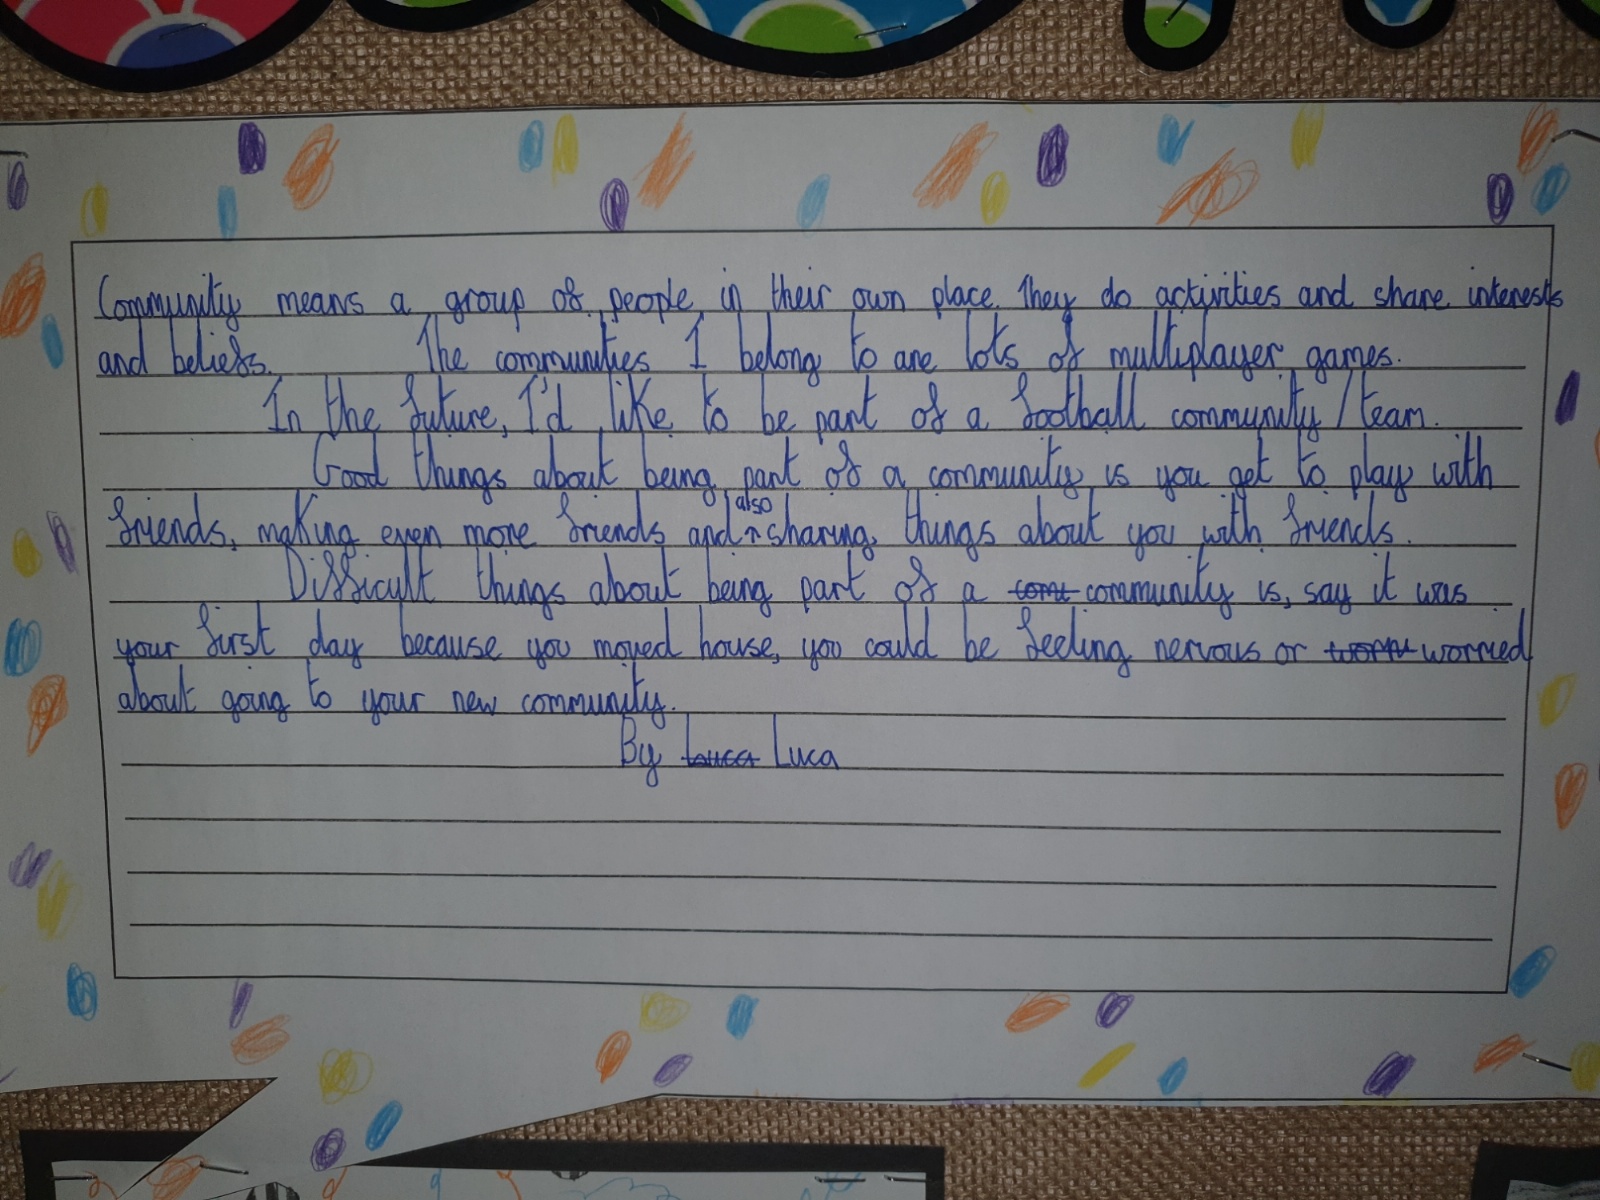 Community means a group of people in their own place. They do activities and share interests
and beliefs. The communities I belong to are lots of multiplayer games.
In the future, I'd like to be part of a football community/team.
Good things about being part of a community is you get to play with
friends, making even more friends and also sharing things about you with friends.
Difficult things about being part of a comt community is, say it was
your first day because you moved house, you could be feeling nervous or worried
about going to your new community.
By Luca